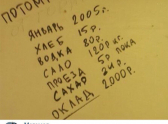 ПОТОМ
ЯНВАРЬ 2005г.
ХЛЕБ 15р.
ВОДКА 80р.
САЛО 120р кг.
ПРОЕЗД 5р ПОКА
САХАР 21р.
ОКЛАД 2000р.